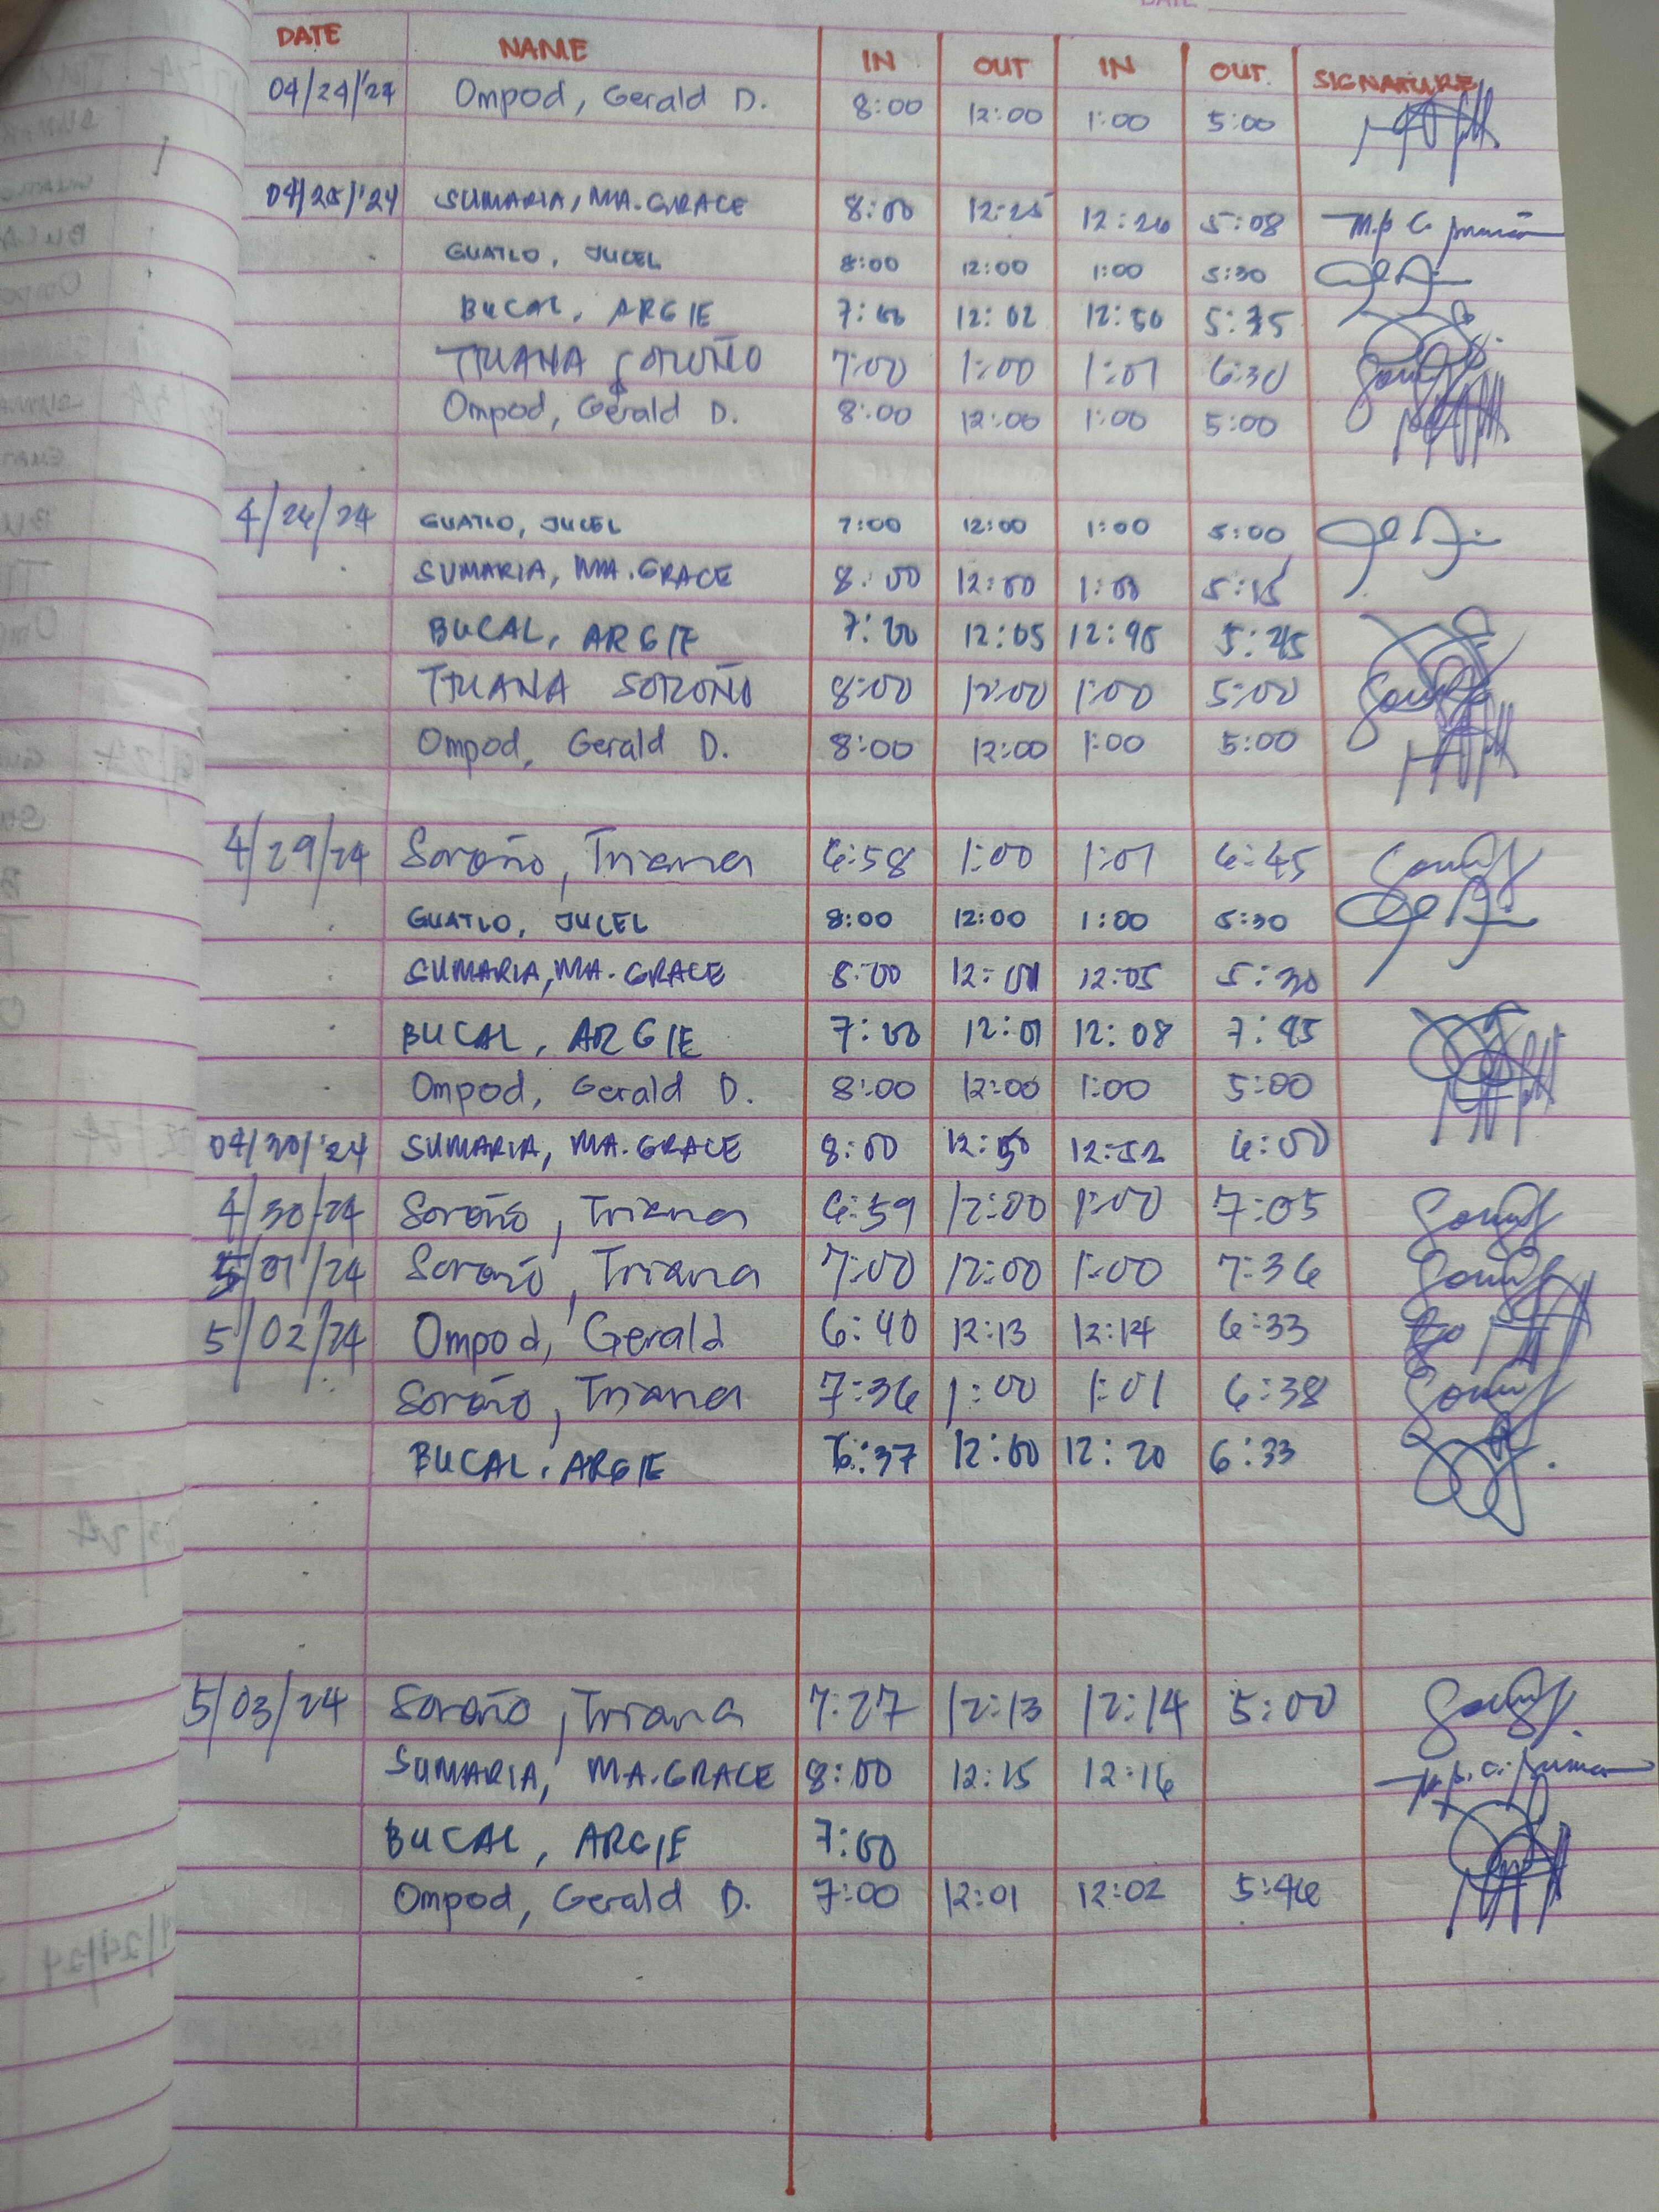 DATE
DATE NAME IN OUT IN OUT SIGNATURE
04/24/'24 Ompod, Gerald D. 8:00 12:00 1:00 5:00
04/25/'24 SUMARIA, MA. GRACE 8:00 12:25 12:26 5:08
GUATLO, JUCEL 8:00 12:00 1:00 5:30
BUCAL, ARGIE 7:00 12:02 12:50
TRIANA SOROÑO 7:00 1:00 1:01 6:30
Ompod, Gerald D. 8:00 12:00 1:00 5:00
4/26/24 GUATLO, JUCEL 7:00 12:00 1:00 5:00
SUMARIA, MA. GRACE 8:00 12:00 1:00 5:15
BUCAL, ARGIE 7:00 12:05 12:45 5:45
TRIANA SOROÑO 8:00 12:00 1:00 5:00
Ompod, Gerald D. 8:00 12:00 1:00 5:00
4/29/24 Soroño, Triana 6:58 1:00 1:01 6:45
GUATLO, JUCEL 8:00 12:00 1:00 5:30
SUMARIA, MA. GRACE 8:00 12:01 12:05 5:30
BUCAL, ARGIE 7:00 12:01 12:08 7:45
Ompod, Gerald D. 8:00 12:00 1:00 5:00
04/30/'24 SUMARIA, MA. GRACE 8:00 12:50 12:52 6:00
4/30/24 Soroño, Triana 6:59 12:00 1:00 7:05
5/01/24 Soroño, Triana 7:00 12:00 1:00 7:36
5/02/24 Ompod, Gerald 6:40 12:13 12:14 6:33
Soroño, Triana 7:36 1:00 1:01 6:38
BUCAL, ARGIE 6:37 12:00 12:20 6:33
5/03/24 Soroño, Triana 7:27 12:13 12:14 5:00
SUMARIA, MA. GRACE 8:00 12:15 12:16
BUCAL, ARGIE 7:00
Ompod, Gerald D. 7:00 12:01 12:02 5:46